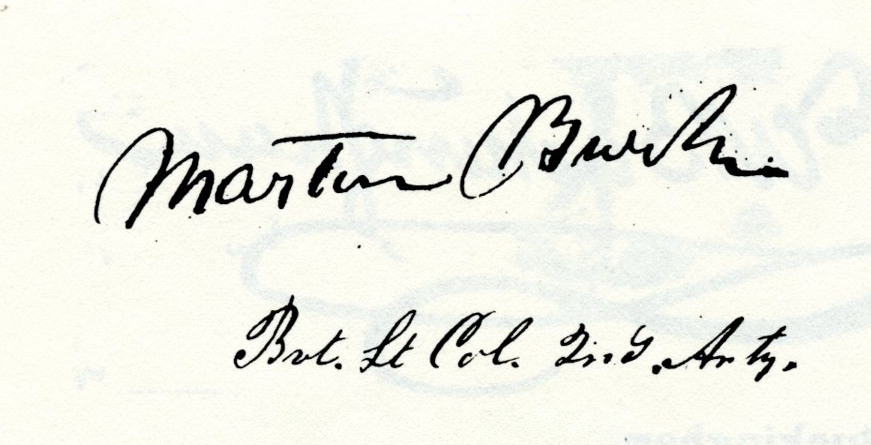 Martin Burke
Bvt. Lt Col. 2nd. Arty.